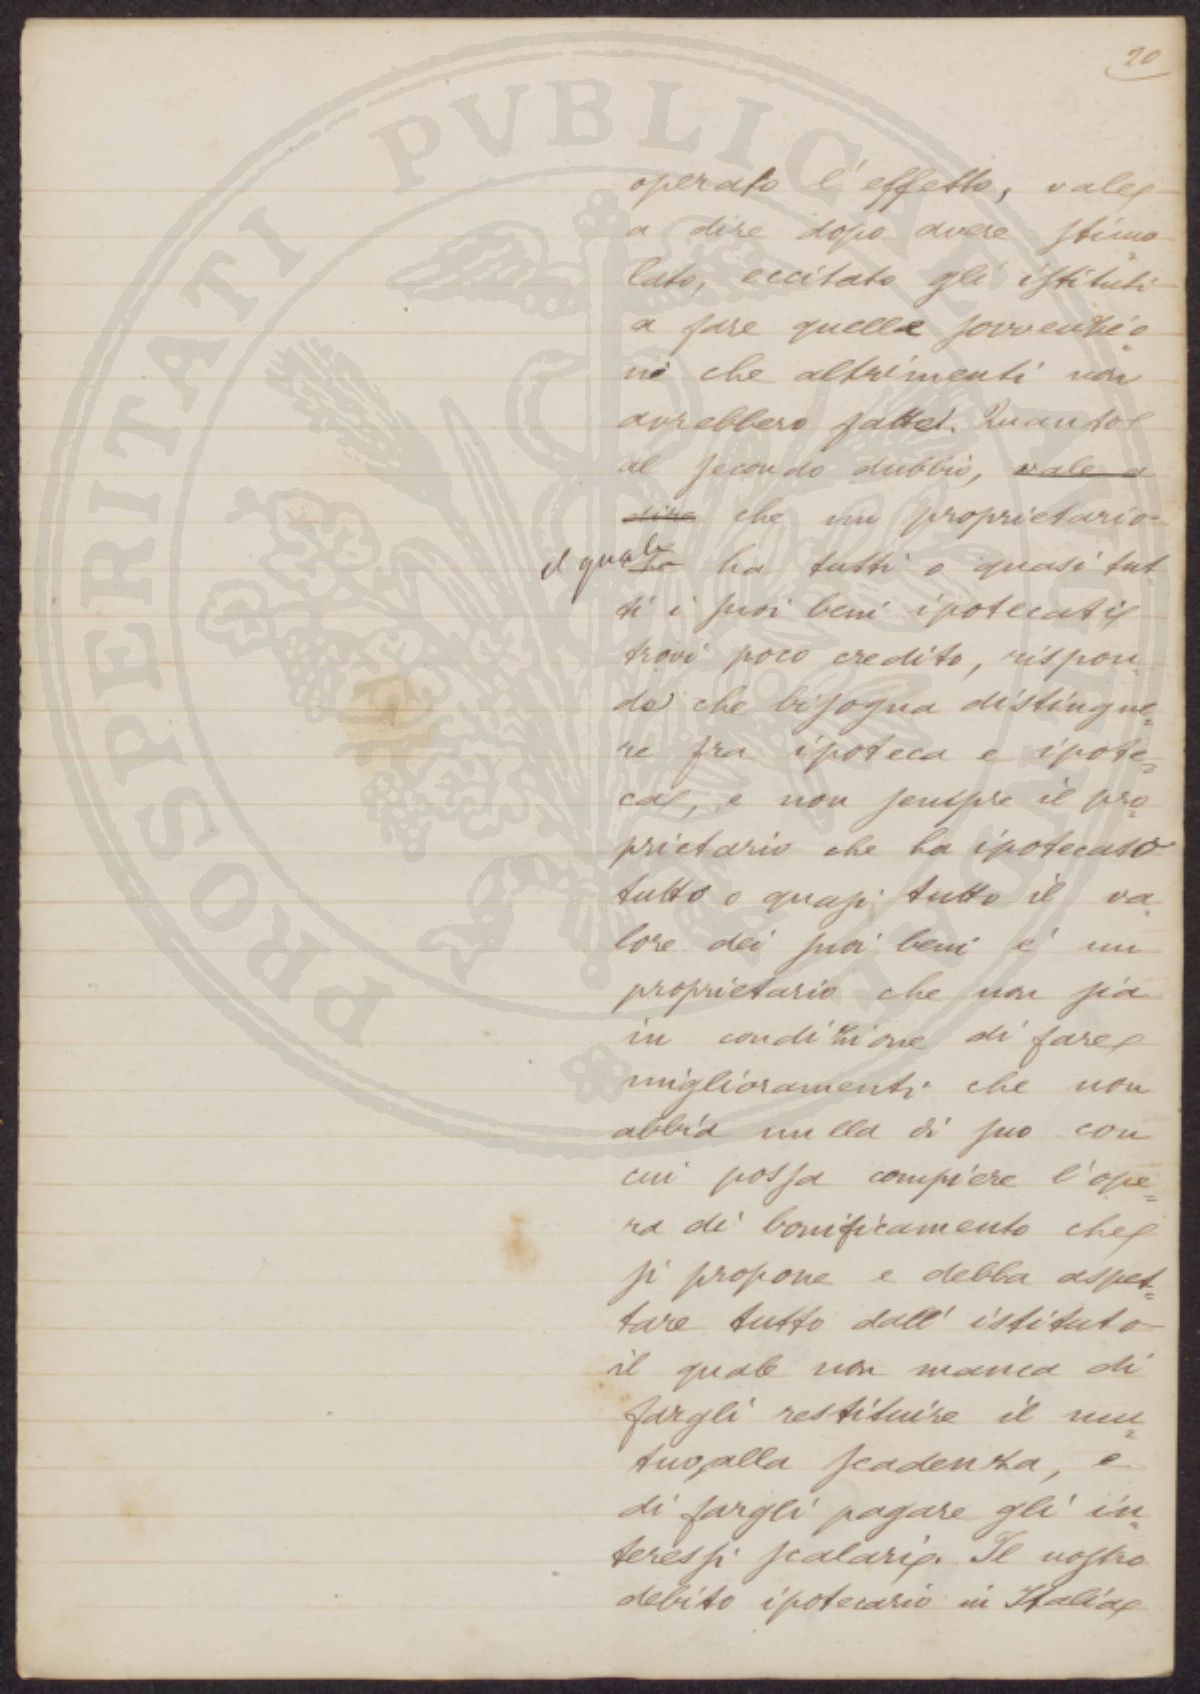 20
operato l'effetto, vale
a dire dopo avere stimo=
lato, eccitato gli istituti
a fare quelle sovvenzio=
ni che altrimenti non
avrebbero fatte. Quanto
al secondo dubbio, vale a
dire che un proprietario
il quale ha tutti o quasi tut=
ti i suoi beni ipotecati
trovi poco credito, rispon=
de che bisogna distingue=
re fra ipoteca e ipote=
ca, e non sempre il pro=
prietario che ha ipotecato
tutto o quasi tutto il va=
lore dei suoi beni è un
proprietario che non sia
in condizione di fare
miglioramenti che non
abbia nulla di suo con
cui possa compiere l'ope=
ra di bonificamento che
si propone e debba aspet=
tare tutto dall'istituto
il quale non manca di
fargli restituire il mu=
tuo, alla scadenza, e
di fargli pagare gli in=
teressi scalari. Il nostro
debito ipotecario in Italia
PVBLICAE
PROSPERITATI